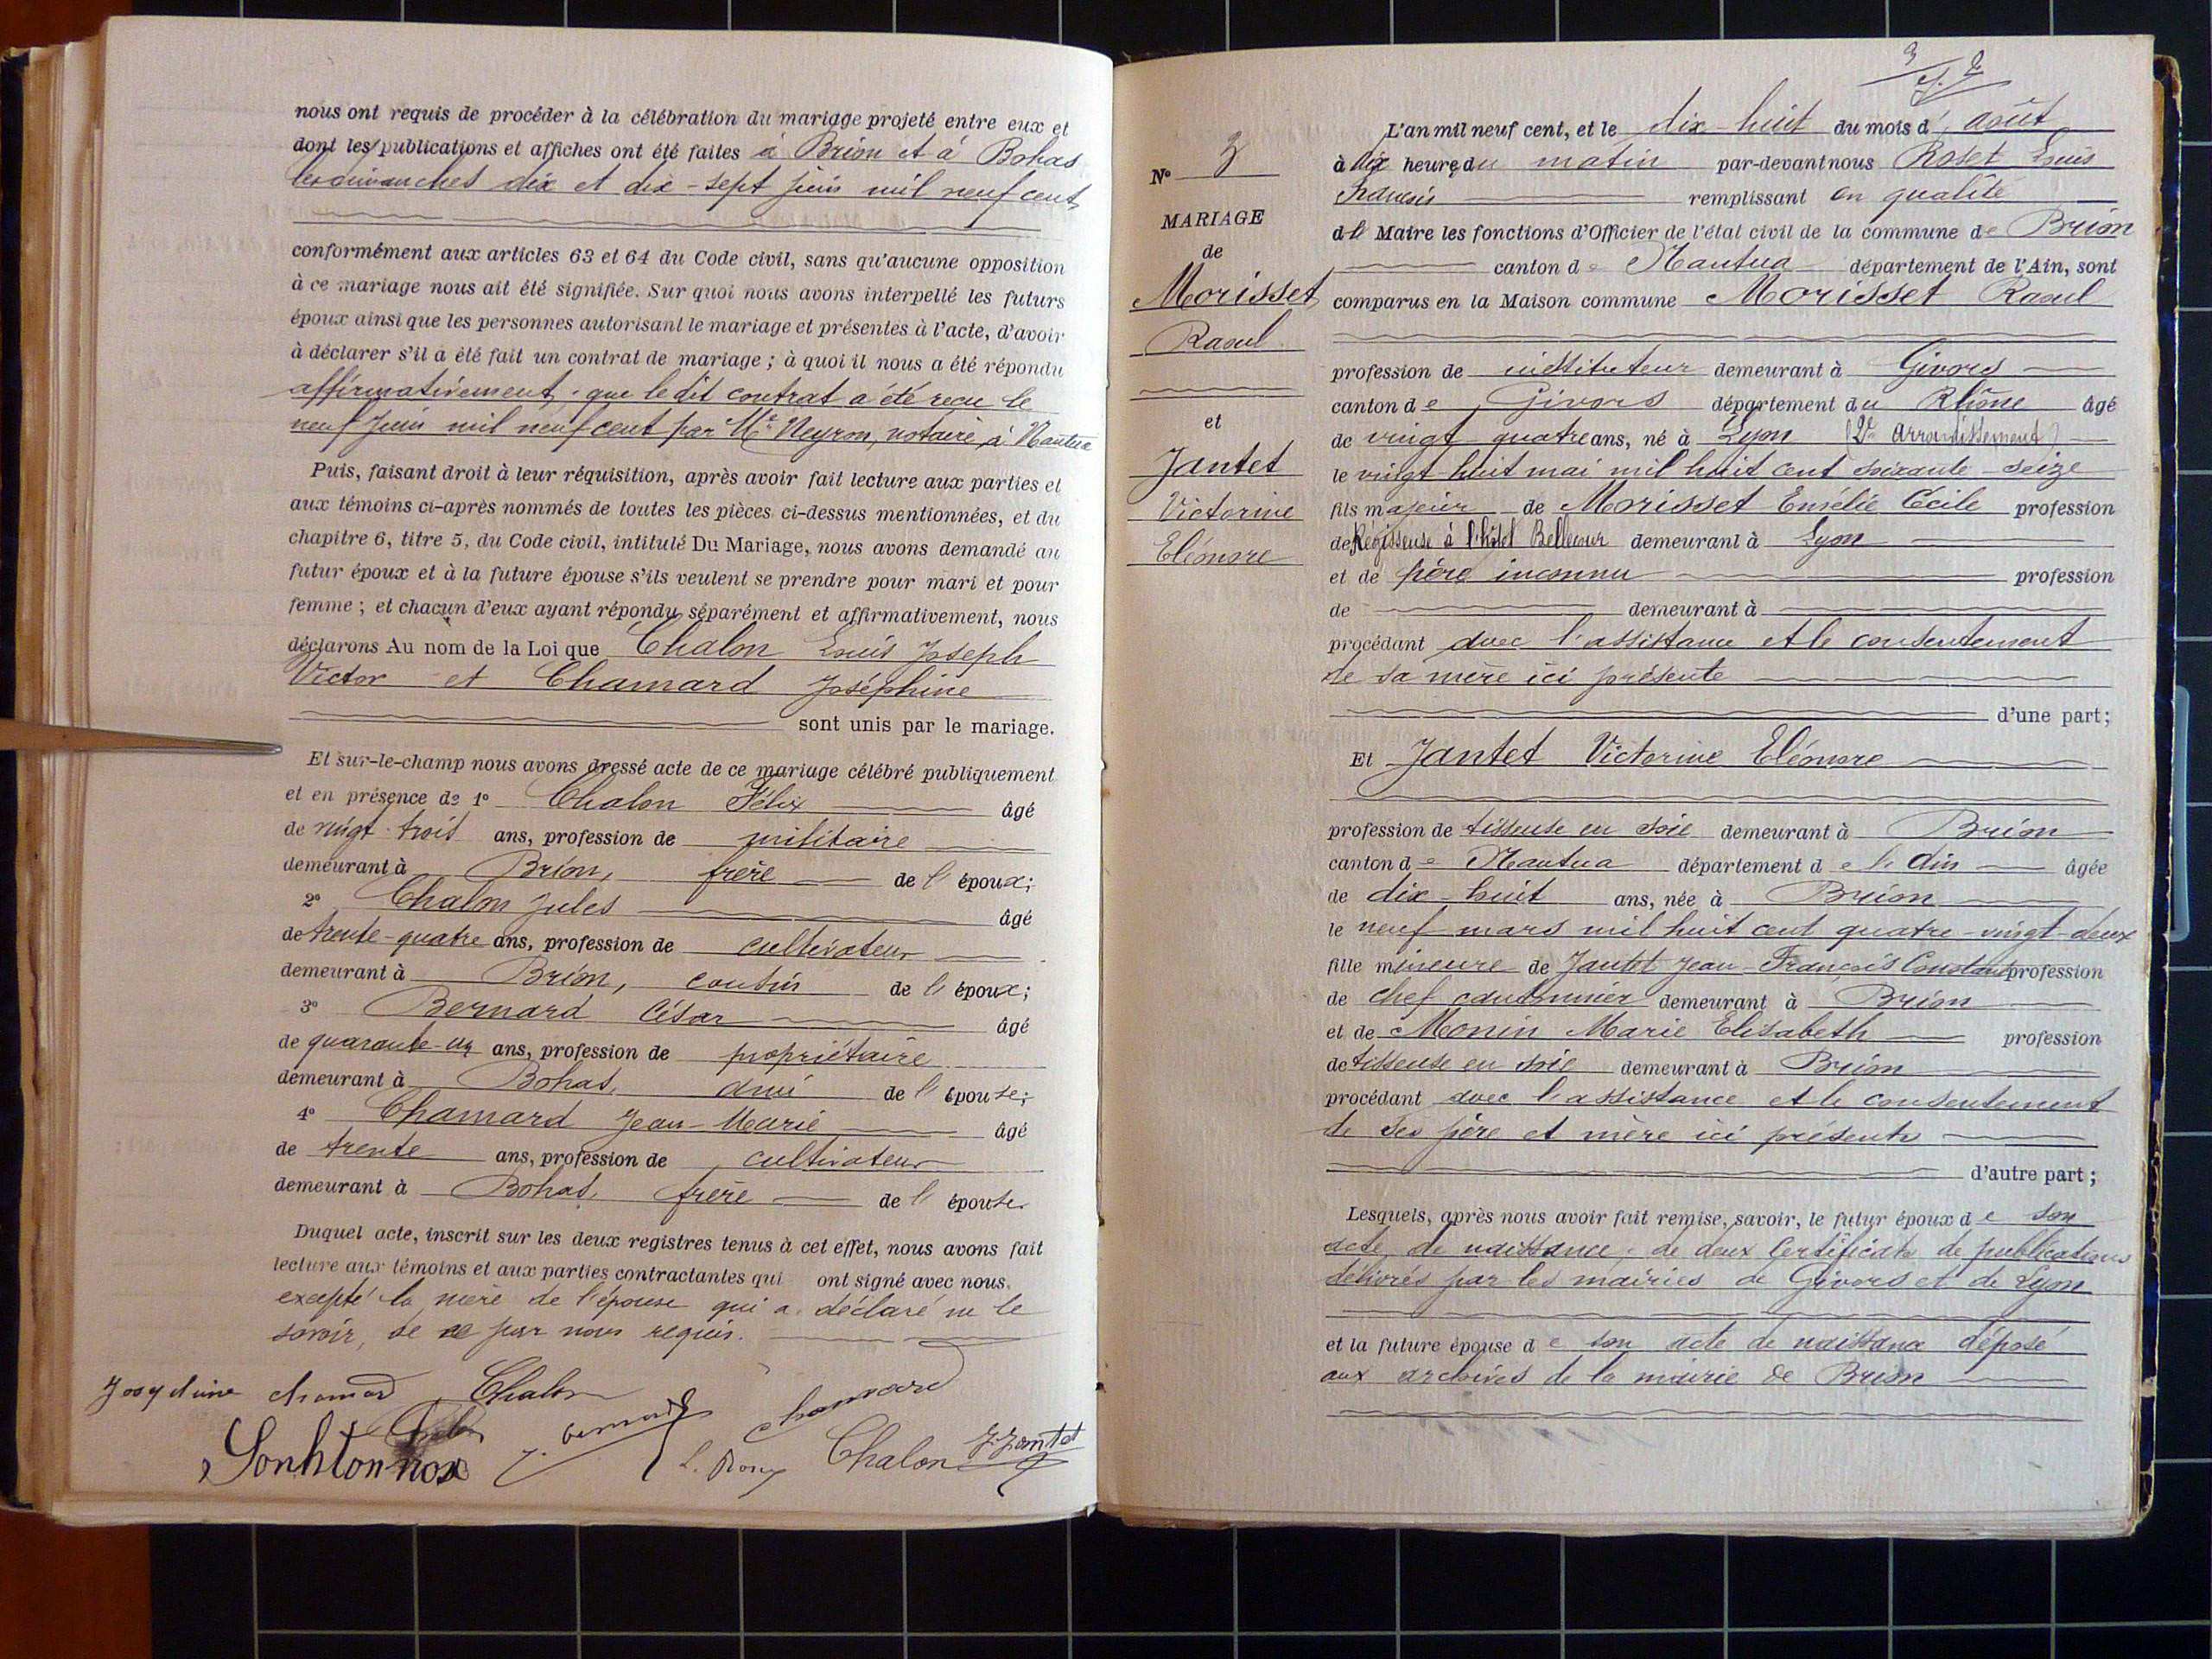 nous ont requis de procéder à la célébration du mariage projeté entre eux et
dont les publications et affiches ont été faites à Brion et à Bohas
les dimanches dix et dix-sept juin mil neuf cent
conformément aux articles 63 et 64 du Code civil, sans qu'aucune opposition
à ce mariage nous ait été signifiée. Sur quoi nous avons interpellé les futurs
époux ainsi que les personnes autorisant le mariage et présentes à l'acte, d'avoir
à déclarer s'il a été fait un contrat de mariage ; à quoi il nous a été répondu
affirmativement, que le dit contrat a été reçu le
neuf juin mil neuf cent par Me Neyron, notaire, à Nantua
Puis, faisant droit à leur réquisition, après avoir fait lecture aux parties et
aux témoins ci-après nommés de toutes les pièces ci-dessus mentionnées, et du
chapitre 6, titre 5, du Code civil, intitulé Du Mariage, nous avons demandé au
futur époux et à la future épouse s'ils veulent se prendre pour mari et pour
femme ; et chacun d'eux ayant répondu séparément et affirmativement, nous
déclarons Au nom de la Loi que Chalon Louis Joseph
Victor et Chamard Joséphine
sont unis par le mariage.
Et sur-le-champ nous avons dressé acte de ce mariage célébré publiquement
et en présence de 1° Chalon Félix âgé
de vingt-trois ans, profession de militaire
demeurant à Brion, frère de l'époux;
2° Chalon Jules âgé
de trente-quatre ans, profession de cultivateur
demeurant à Brion, cousin de l'époux;
3° Bernard César âgé
de quarante-un ans, profession de propriétaire
demeurant à Bohas, ami de l'épouse;
4° Chamard Jean-Marie âgé
de trente ans, profession de cultivateur
demeurant à Bohas, frère de l'épouse.
Duquel acte, inscrit sur les deux registres tenus à cet effet, nous avons fait
lecture aux témoins et aux parties contractantes qui ont signé avec nous.
excepté la mère de l'épouse qui a déclaré ne le
savoir, de ce par nous requis.
chamard Chalon
chamard
J. bernard
Chalon J. Jantet
N° 3
MARIAGE
de
Morisset
Raoul
et
Jantet
Victorine
Eléonore
L'an mil neuf cent, et le dix-huit du mois d'août
à dix heure du matin par-devant nous Roset Louis
François remplissant en qualité
de Maire les fonctions d'Officier de l'état civil de la commune de Brion
canton de Nantua département de l'Ain, sont
comparus en la Maison commune Morisset Raoul
profession de instituteur demeurant à Givors
canton de Givors département du Rhône âgé
de vingt-quatre ans, né à Lyon (2e arrondissement)
le vingt-huit mai mil huit cent soixante-seize
fils majeur de Morisset Emélie Cécile profession
de Régisseuse à l'hôtel Bellecour demeurant à Lyon
et de père inconnu profession
de demeurant à
procédant avec l'assistance et le consentement
de sa mère ici présente
d'une part;
Et Jantet Victorine Eléonore
profession de tisseuse en soie demeurant à Brion
canton de Nantua département de l'Ain âgée
de dix-huit ans, née à Brion
le neuf mars mil huit cent quatre-vingt-deux
fille mineure de Jantet Jean-François Constant profession
de chef cantonnier demeurant à Brion
et de Monin Marie Elisabeth profession
de tisseuse en soie demeurant à Brion
procédant avec l'assistance et le consentement
de ses père et mère ici présents
d'autre part ;
Lesquels, après nous avoir fait remise, savoir, le futur époux de son
acte de naissance, de deux certificats de publications
délivrés par les mairies de Givors et de Lyon
et la future épouse de son acte de naissance déposé
aux archives de la mairie de Brion